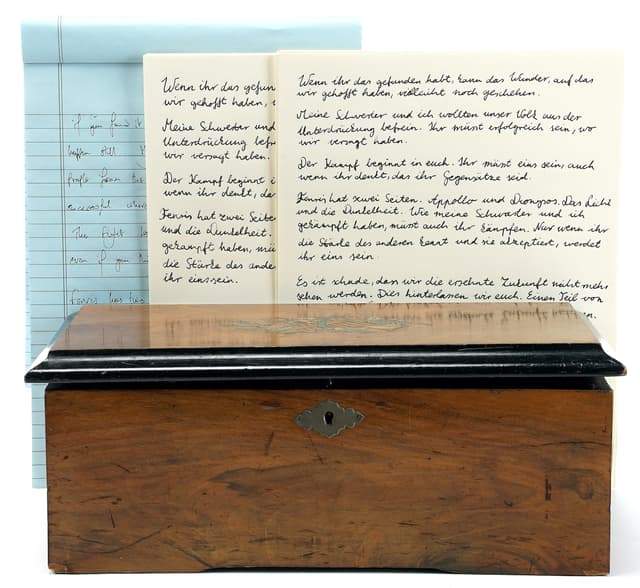 if you found it
happen still
people from the
successful where
The fight b
even if you
Fenris has
Wenn ihr das gefun
wir gehofft haben,
Meine Schwester und
Unterdrückung befr
wir versagt haben.
Der Kampf beginnt i
wenn ihr denkt, da
Fenris hat zwei Seiten
und die Dunkelheit.
gekämpft haben, mü
die Stärke des ande
ihr eins sein.
Wenn ihr das gefunden habt, kann das Wunder, auf das
wir gehofft haben, vielleicht noch geschehen.
Meine Schwester und ich wollten unser Volk aus der
Unterdrückung befrein. Ihr müsst erfolgreich sein, wo
wir versagt haben.
Der Kampf beginnt in euch. Ihr müsst eins sein, auch
wenn ihr denkt, das ihr Gegensätze seid.
Fenris hat zwei Seiten. Appollo und Dionysos. Das Licht
und die Dunkelheit. Wie meine Schwester und ich
gekämpft haben, müsst auch ihr kämpfen. Nur wenn ihr
die Stärke des anderen kennt und sie akzeptiert, werdet
ihr eins sein.
Es ist schade, dass wir die ersehnte Zukunft nicht mehr
sehen werden. Dies hinterlassen wir euch. Einen Teil von